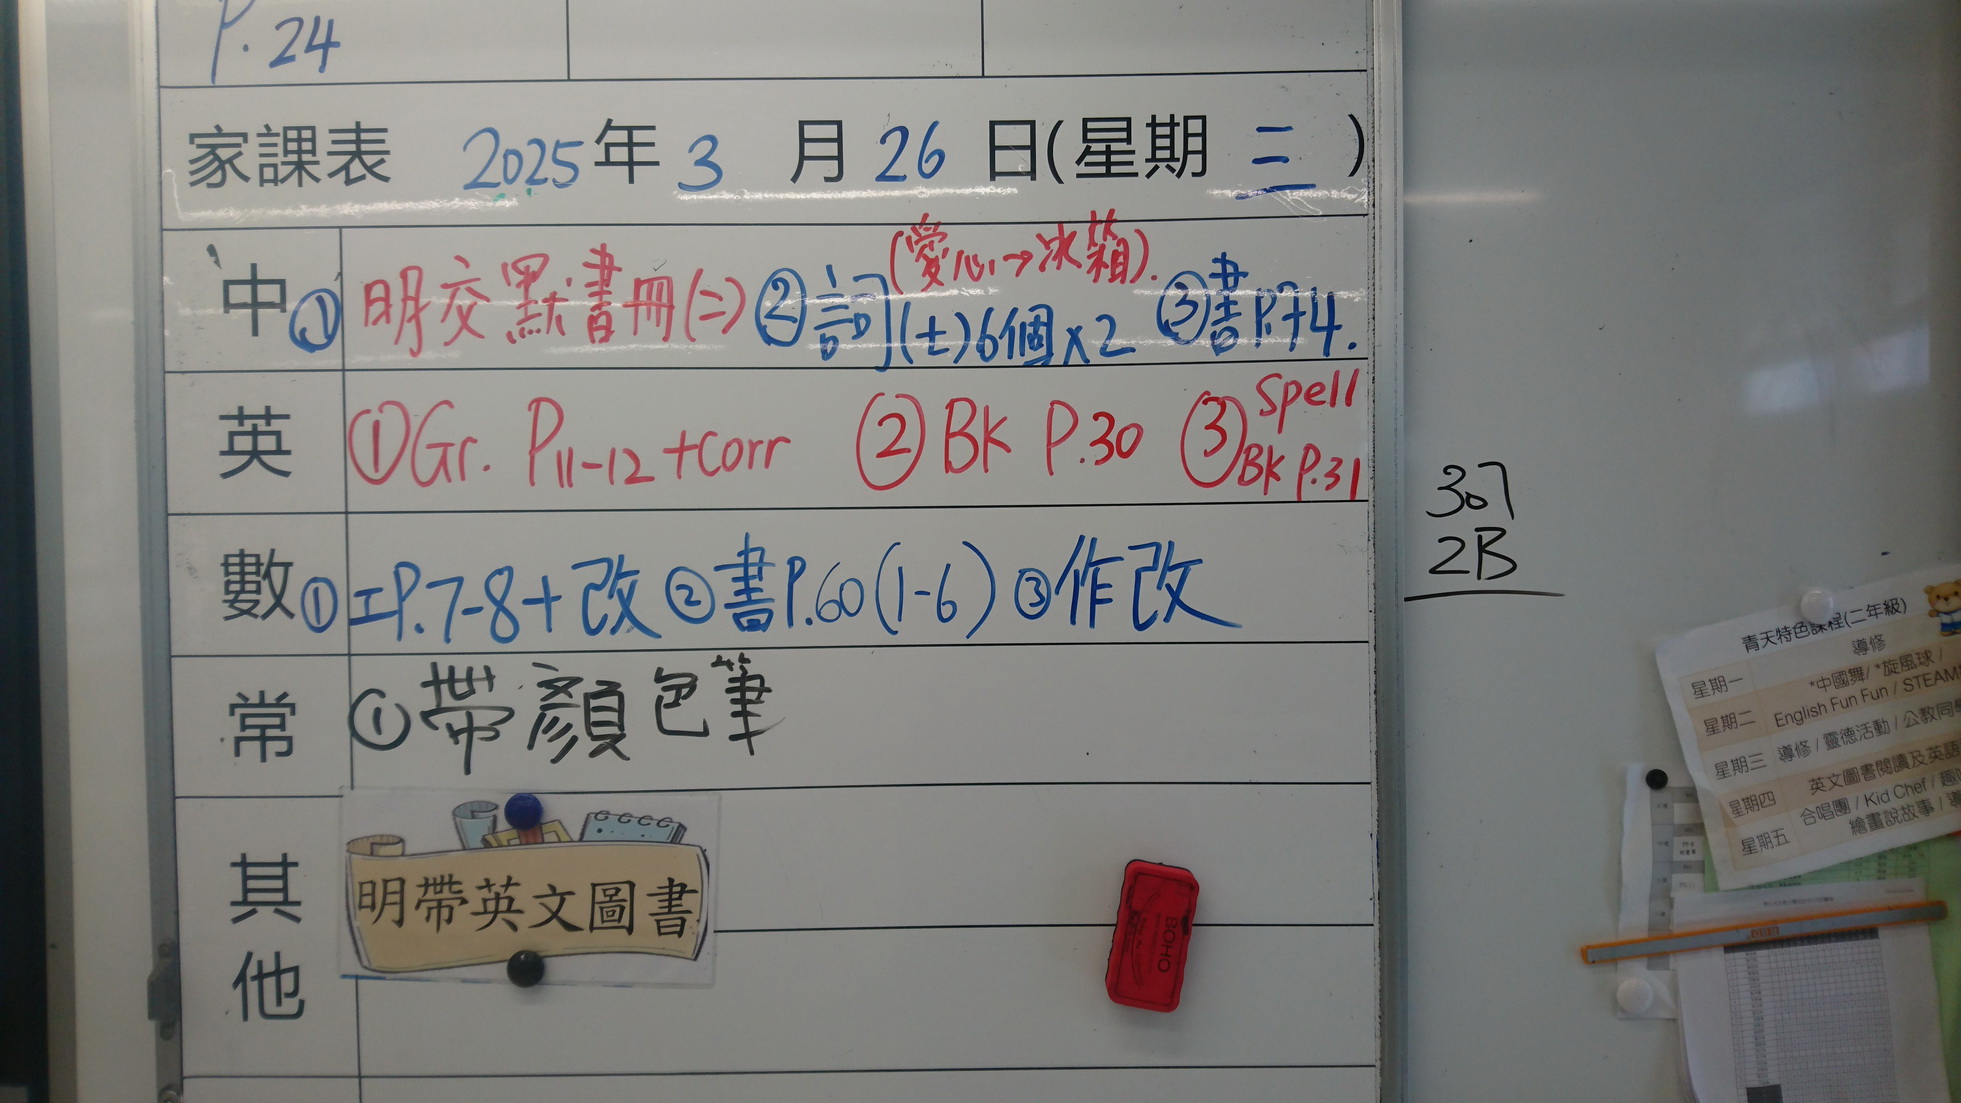 P. 24
家課表 2025年 3 月 26 日(星期 三 )
(愛心→冰箱).
中 ① 明交默書冊(二) ② 詞(七)6個x2 ③書P.74.
英 ①Gr. P11-12 +corr ② BK P.30 ③ Spell
BK P.31
數 ① 工P.7-8+改 ②書P.60(1-6) ③作改
常 ① 帶顏色筆
其他
明帶英文圖書
BOHO
307
2B
青天特色課程(二年級)
星期一 導修
星期二 *中國舞/ *旋風球 /
English Fun Fun / STEAM
星期三 導修 / 靈德活動 / 公教同
星期四 英文圖書閱讀及英語
星期五 合唱團 / Kid Chef / 趣
繪畫說故事 / 導